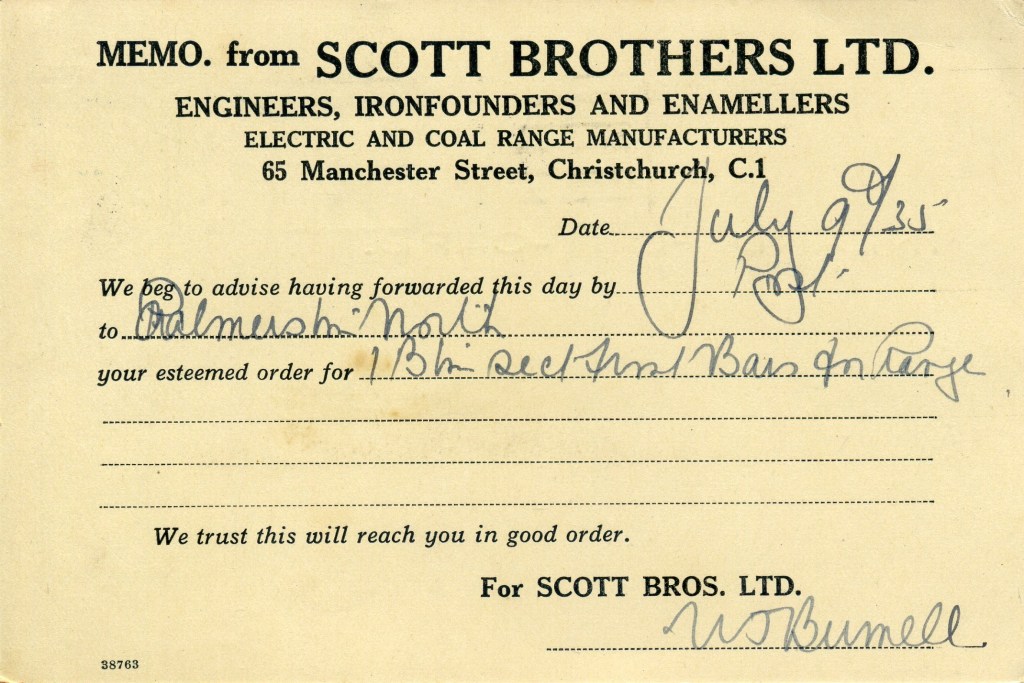 MEMO. from SCOTT BROTHERS LTD.
ENGINEERS, IRONFOUNDERS AND ENAMELLERS
ELECTRIC AND COAL RANGE MANUFACTURERS
65 Manchester Street, Christchurch, C.1
Date July 9th/35
We beg to advise having forwarded this day by Post
to Palmerston North
your esteemed order for 1 Bars for Range
We trust this will reach you in good order.
For SCOTT BROS. LTD.
38763